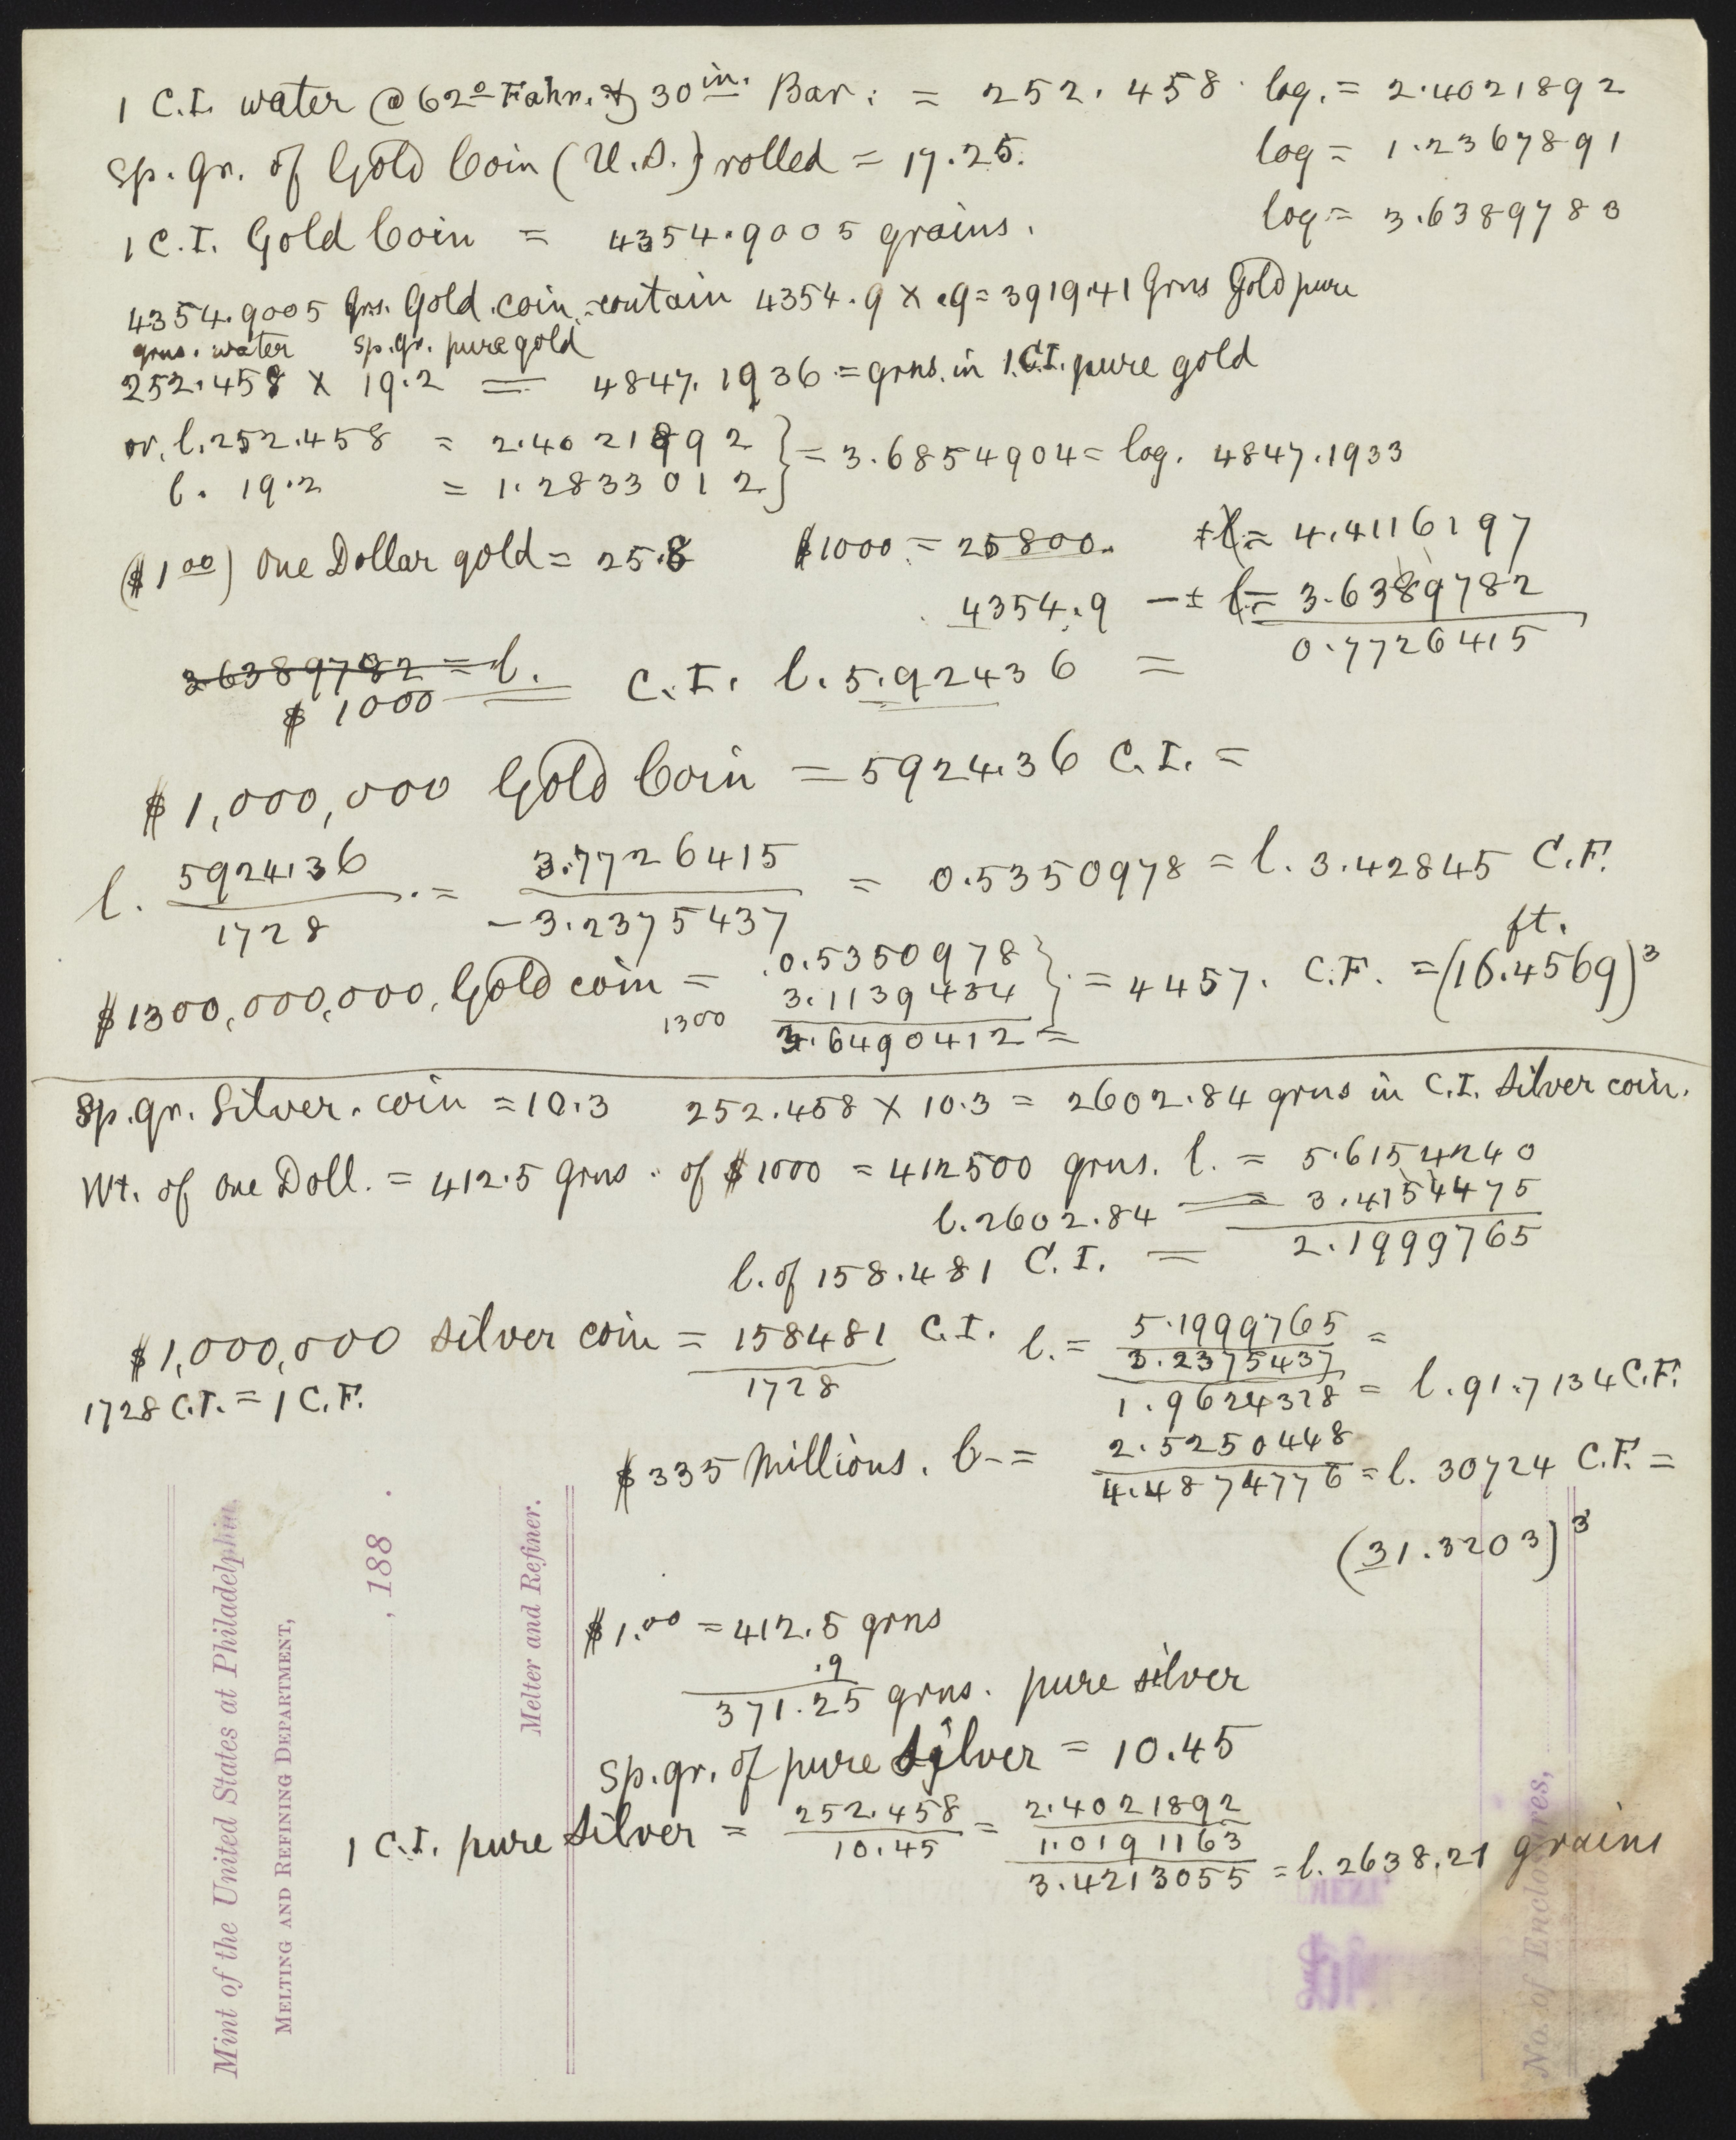 1 C.I. water @ 62º Fahr. & 30 in. Bar. = 252.458 log. = 2.4021892
Sp. gr. of Gold Coin (U.S.) rolled = 17.25. log = 1.2367891
1 C.I. Gold Coin = 4354.9005 grains. log = 3.6389783
4354.9005 grs. Gold coin contain 4354.9 × .9 = 3919.41 Grns Gold pure
grns. water sp. gr. pure gold
252.458 × 19.2 = 4847.1936 = grns. in 1 C.I. pure gold
or, l. 252.458 = 2.4021892 } = 3.6854904 = log. 4847.1933
l. 19.2 = 1.2833012
($1 00) One Dollar gold = 25.8 $1000 = 25800. + l = 4.4116197
4354.9 – ± l = 3.6389782
0.7726415
3.6389782 = l.
$1000 = C.I. l. 5.92436 =
$1,000,000 Gold Coin = 5924.36 C.I. =
l. 5924.36 = 3.7726415 = 0.5350978 = l. 3.42845 C.F.
1728 – 3.2375437
ft.
$1300,000,000, Gold coin = 0.5350978 } = 4457. C.F. = (16.4569)3
1300 3.1139434
3.6490412 =
Sp. gr. Silver. coin = 10.3 252.458 × 10.3 = 2602.84 grns in C.I. Silver coin.
Wt. of one Doll. = 412.5 grns. of $1000 = 412500 grns. l. = 5.6154240
l. 2602.84 = 3.4154475
2.1999765
l. of 158.481 C.I. =
$1,000,000 silver coin = 158481 C.I. l. = 5.1999765 =
1728 3.2375437
1728 C.I. = 1 C.F. 1.9624328 = l. 91.7134 C.F.
$335 Millions. l. = 2.5250448
4.4874776 = l. 30724 C.F. =
(31.3203)3
$1.00 = 412.5 grns
.9
371.25 grns. pure silver
Sp. gr. of pure Silver = 10.45
1 C.I. pure Silver = 252.458 = 2.4021892
10.45 1.0191163
3.4213055 = l. 2638.21 grains
Mint of the United States at Philadelphia,
MELTING AND REFINING DEPARTMENT,
, 188 .
Melter and Refiner.
No. of Enclosures,